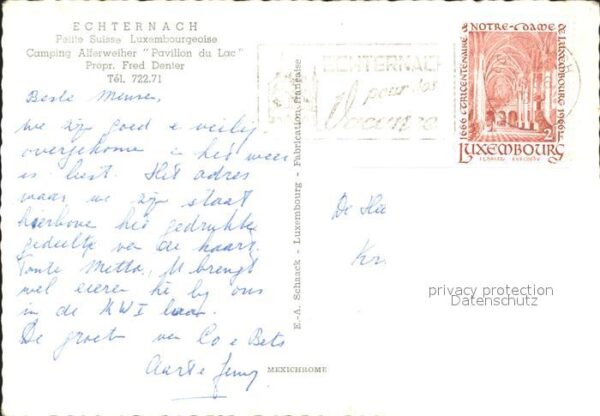 ECHTERNACH
Petite Suisse Luxembourgeoise
Camping Alferweiher "Pavillon du Lac"
Propr. Fred Denter
Tél. 722.71
Beste Mensen,
we zijn goed e veilig
overgekome e het weer
is best. Het adres
waar we zijn staat
hierbove het gedrukte
gedeelte van de kaart.
Tante Metta, U brengt
wel eieren he bij ons
in de
De groet van Co e Bets
Aart e
E.-A. Schaack - Luxembourg - Fabrication française
MEXICHROME
ECHTERNACH
pour vos
Vacances
1666 TRICENTENAIRE NOTRE-DAME DE LUXEMBOURG 1966
2F
LUXEMBOURG
De Hee
Kr.
privacy protection
Datenschutz